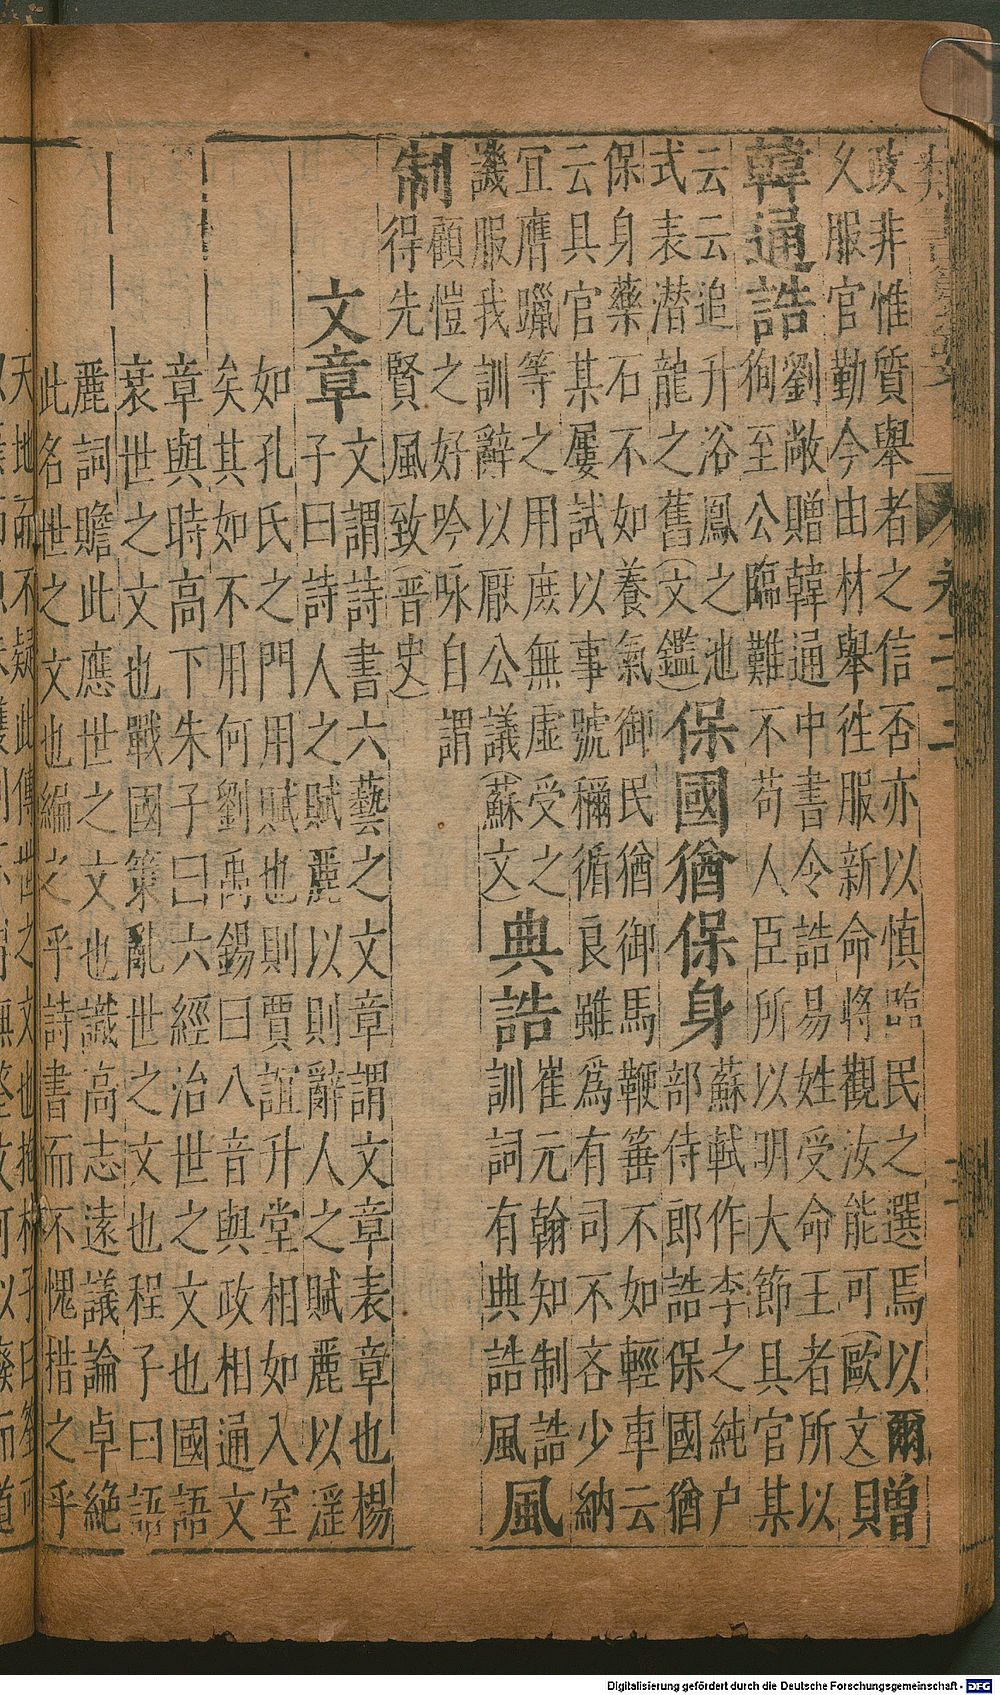 政非惟質舉者之信否亦以慎臨民之選焉以爾
久服官勤今由材舉徃服新命將觀汝能可(歐文)
贈
韓通誥
劉敞贈韓通中書令誥易姓受命王者所以
徇至公臨難不苟人臣所以明大節具官某
云云追升浴鳳之池
式表潜龍之舊(文鑑)
保國猶保身
蘇軾作李之純户
部侍郎誥保國猶
保身藥石不如養氣御民猶御馬鞭箠不如輕車云
云具官某屢試以事號稱循良雖爲有司不吝少納
宜膺躐等之用庶無虛受之
譏服我訓辭以厭公議(蘇文)
典誥
崔元翰知制誥
訓詞有典誥風
風
制
顧愷之好吟咏自謂
得先賢風致(晉史)
文章
文謂詩書六藝之文章謂文章表章也楊
子曰詩人之賦麗以則辭人之賦麗以淫
如孔氏之門用賦也則賈誼升堂相如入室
矣其如不用何劉禹錫曰八音與政相通文
章與時高下朱子曰六經治世之文也國語
衰世之文也戰國策亂世之文也程子曰語
麗詞贍此應世之文也識高志遠議論卓絶
此名世之文也編之乎詩書而不愧措之乎
天地而不疑此傳世之文也抱朴子曰
卷二十三
Digitalisierung gefördert durch die Deutsche Forschungsgemeinschaft - DFG